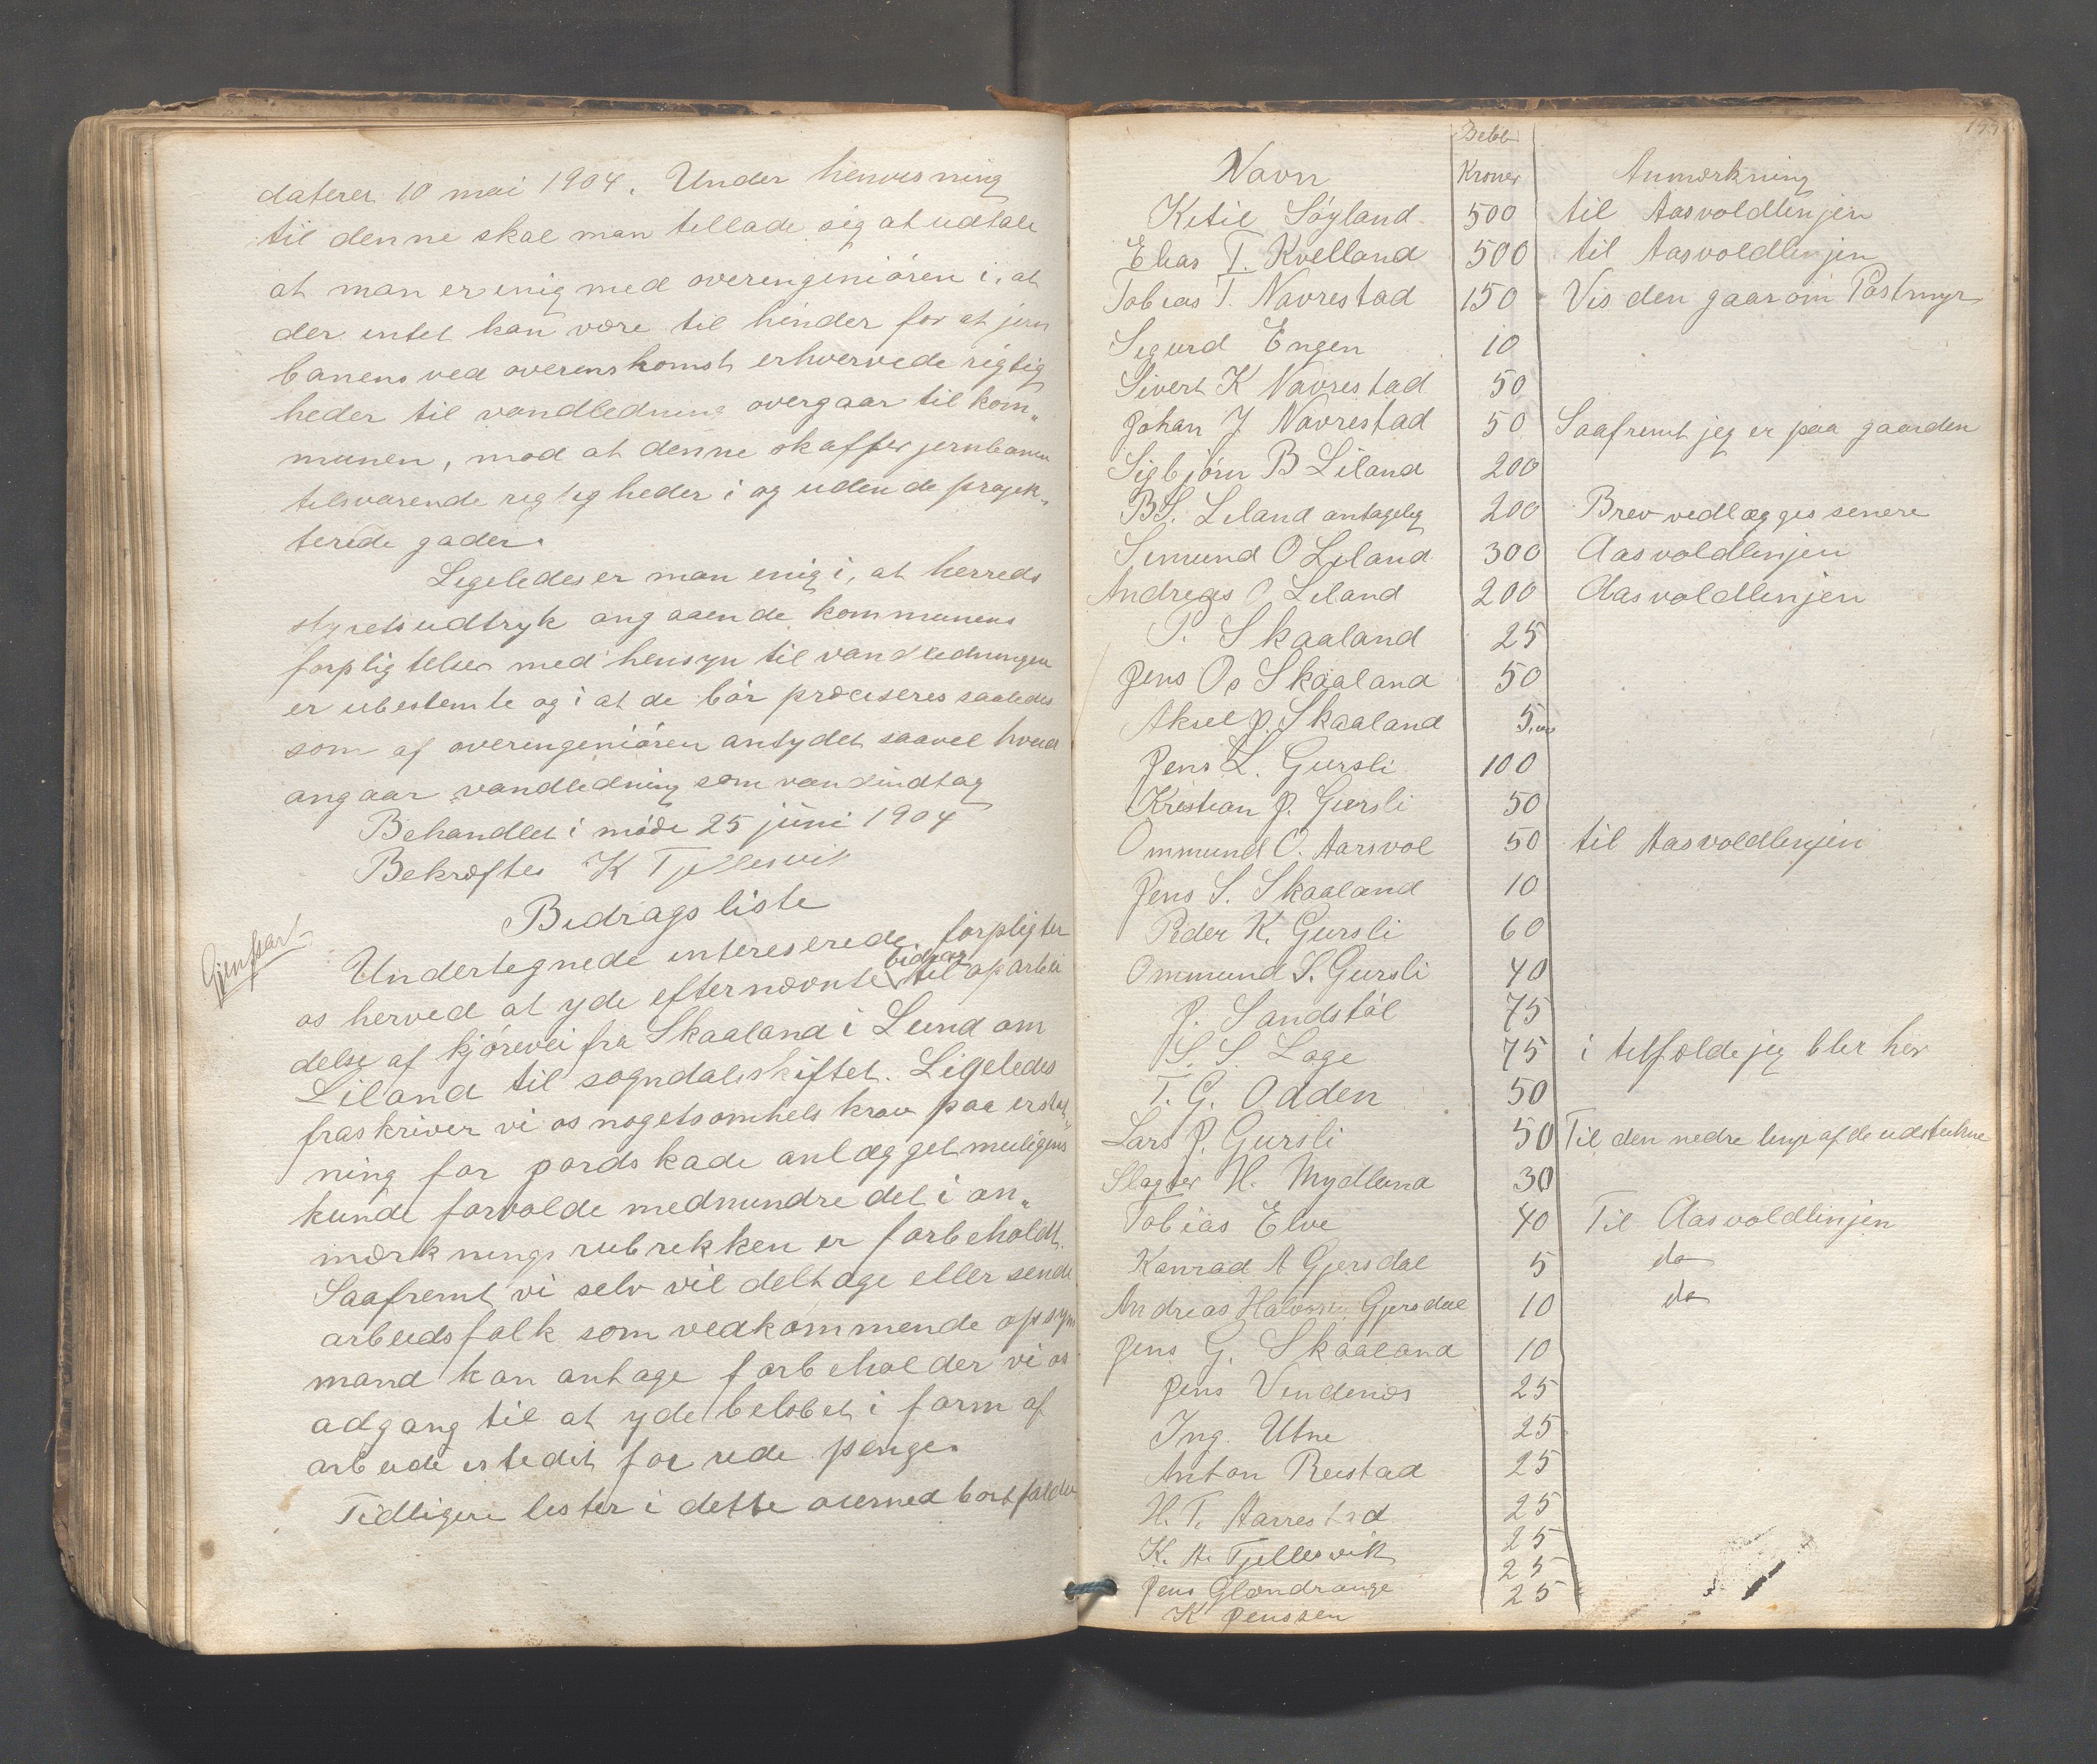 dateret 10 mai 1904. Under henvisning
til denne skal man tellade sig at udtale
at man er enig med overengeniören i, at
der intet kan være til hinder for at jern
banens ved overenskomst erhvervede rigtig
heder til vandledning overgaar til kom„
munen, mod at denne skaffer jernbanen
tilsvarende rigtigheder i og uden de projek„
terede gader.
Ligeledes er man enig i, at herreds
styrets udtryk angaaende kommunens
forpligtelser med hensyn til vandledningen
er ubestemte og i at de bör præciseres saaledes
som af overengeniören antydet saavel hvad
angaar vandledning som vandindtag
Behandlet i möde 25 juni 1904
Bekræftes K Tjellesvik
Bidragsliste
Gjenpart
Undertegnede intereserede forpligter
os herved at yde efternævnte bidrag til oparbei
delse af kjörevei fra Skaaland i Lund om
Liland til sogndalsskiftet. Ligeledes
fraskriver vi os nogetsomhelst krav paa erstat„
ning for jordskade anlægget muligens
kunde forvolde medmindre det i an„
mærkningsrubrikken er forbeholdt.
Saafremt vi selv vil deltage eller sende
arbeidsfolk som vedkommende opsyns
mand kan antage forbeholder vi os
adgang til at yde belöbet i form af
arbeide istedet for rede penge.
Tidligere lister i dette öiemed bortfalder
Navn Belöb Kroner Anmærkning
Ketil Söyland 500 til Aasvoldlinjen
Elias T. Kvelland 500 til Aasvoldlinjen
Tobias T. Navrestad 150 Vis den gaar om Postmyr
Sigurd Engen 10
Sivert K Navrestad 50
Johan J Navrestad 50 Saafremt jeg er paa gaarden
Sigbjörn B Liland 200
B S. Liland antagelig 200 Brev vedlægges senere
Simund O Liland 300 Aasvoldlinjen
Andreas O Liland 200 Aasvoldlinjen
P. Skaaland 25
Jens Os Skaaland 50
Aksel J. Skaaland 5,00
Jens L. Gursli 100
Kristian J. Gursli 50
Ommund O. Aarsvol 50 til Aasvoldlinjen
Jens S. Skaaland 10
Peder K. Gursli 60
Ommund S. Gursli 40
J. Sandstöl 75
S. S. Lage 75 i tilfælde jeg blir her
T. G. Odden 50
Lars J. Gursli 50 Til den nedre linje af de udstukne
Slagter H. Mydland 30
Tobias Elve 40 Til Aasvoldlinjen
Konrad A Gjersdal 5 do
Andreas Halvorsen Gjersdal 10 do
Jens G. Skaaland 10
Jens Vindenes 25
Ing. Utne 25
Anton Reistad 25
H. T. Aarrestad 25
K. A. Tjellesvik 25
Jens Glændrange 25
K Jenssen 25